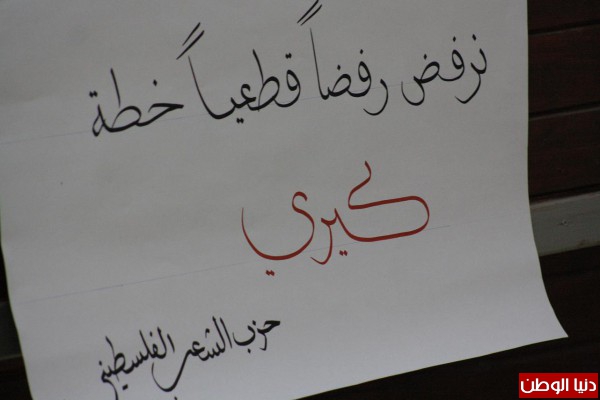 نرفض رفضاً قطعياً خطة
كيري
حزب الشعب الفلسطيني
دنيا الوطن